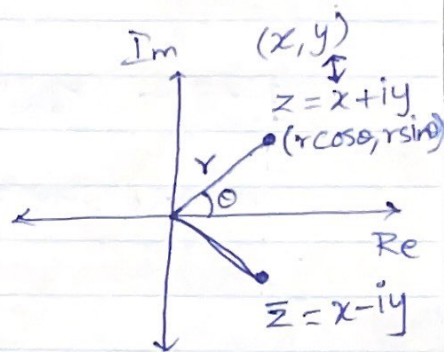 Im
(x, y)
↕
z = x+iy
(rcosθ, rsinθ)
r
θ
Re
z̅ = x-iy